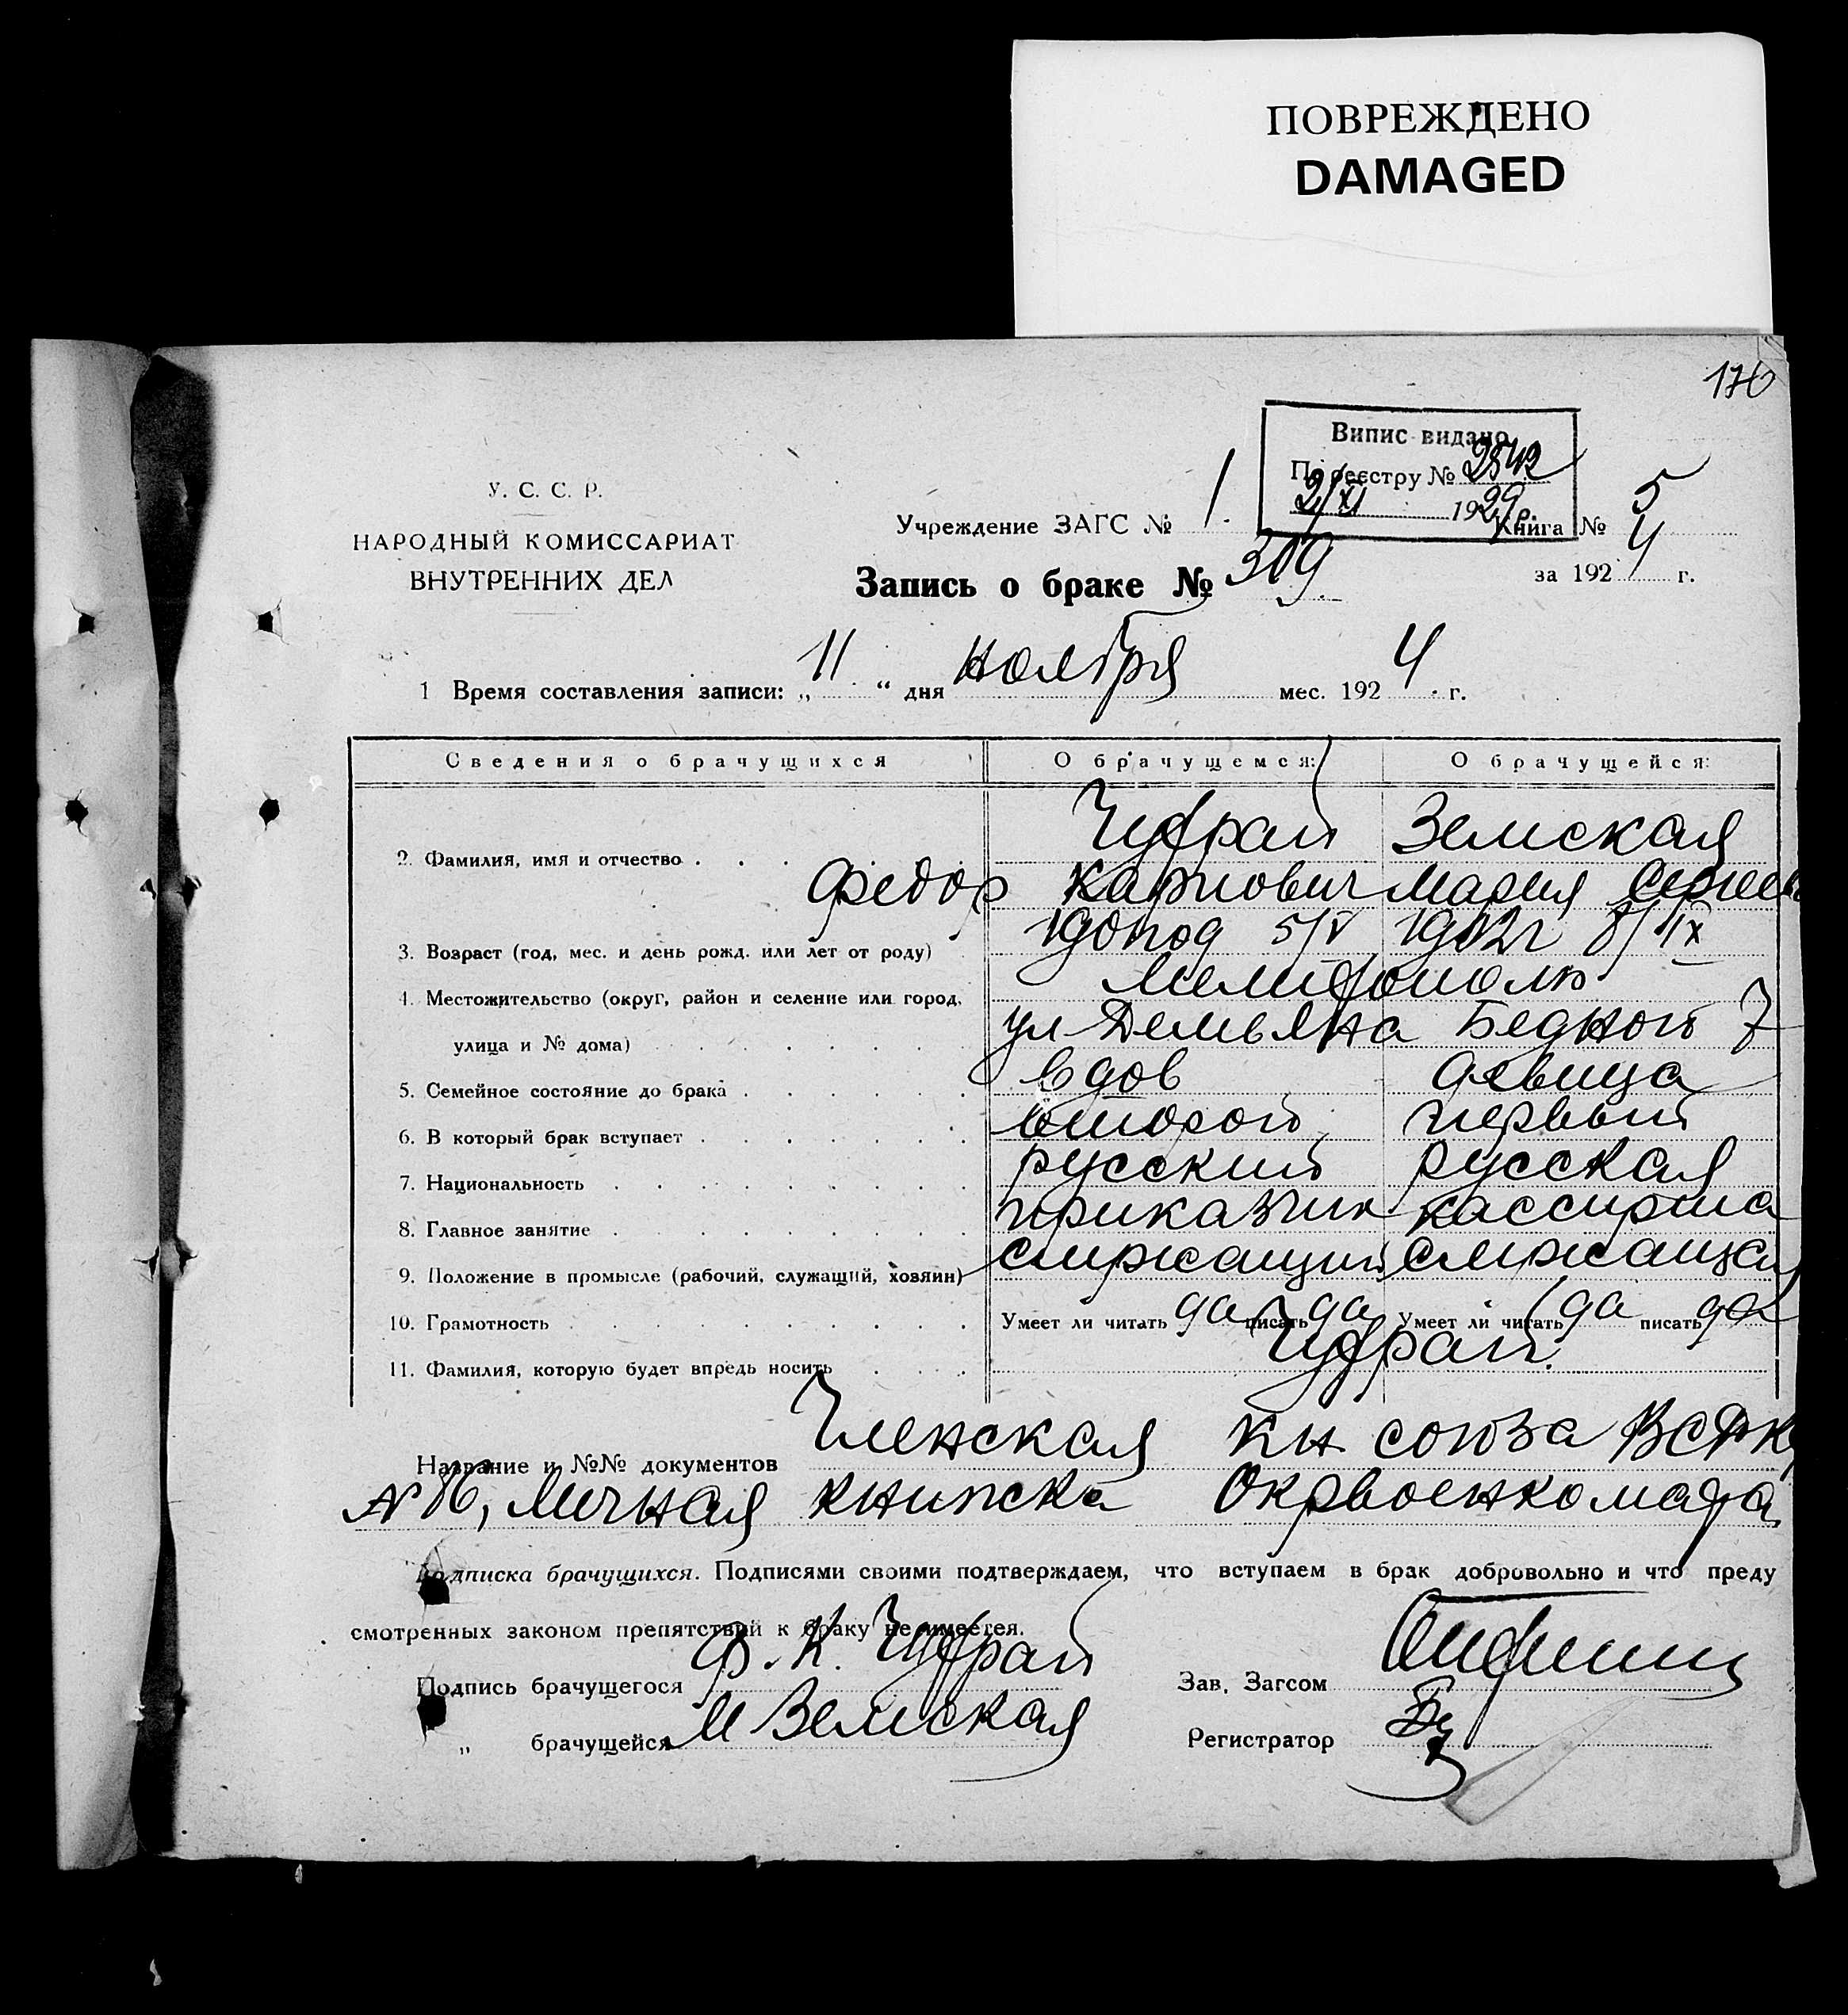 ПОВРЕЖДЕНО
DAMAGED
176
Випис видано
По реєстру № 2542
2/XI 1929 р.
У. С. С. Р.
НАРОДНЫЙ КОМИССАРИАТ
ВНУТРЕННИХ ДЕЛ
Учреждение ЗАГС № 1.
Книга № 5
Запись о браке № 309.
за 1924 г.
1 Время составления записи: „11“ дня ноября мес. 1924 г.
Сведения о брачущихся О брачущемся: О брачущейся:
Чуфрай Земская
2. Фамилия, имя и отчество . . .
Федор Карпович Мария
3. Возраст (год, мес. и день рожд. или лет от роду) . 5/V 1902г 8/IX
4. Местожительство (округ, район и селение или город, Мелитополь
улица и № дома) . . . . . . ул Демьяна Бедного 7
5. Семейное состояние до брака . . . . . . вдов девица
6. В который брак вступает . . . . . . . второй первый
7. Национальность . . . . . . . . . русский русская
8. Главное занятие . . . . . . . . . приказчик кассирша
9. Положение в промысле (рабочий, служащий, хозяин) служащий служащая
10. Грамотность . . . . . . . . . . Умеет ли читать да писать да Умеет ли читать да писать да
11. Фамилия, которую будет впредь носить . . . Чуфрай.
Название и №№ документов Членская кн союза
N 86, Личная книжка Окрвоенкомата
Подписка брачущихся. Подписями своими подтверждаем, что вступаем в брак добровольно и что преду
смотренных законом препятствий к браку не имеется.
Подпись брачущегося Ф. К. Чуфрай Зав. Загсом
„ брачущейся М Земская Регистратор